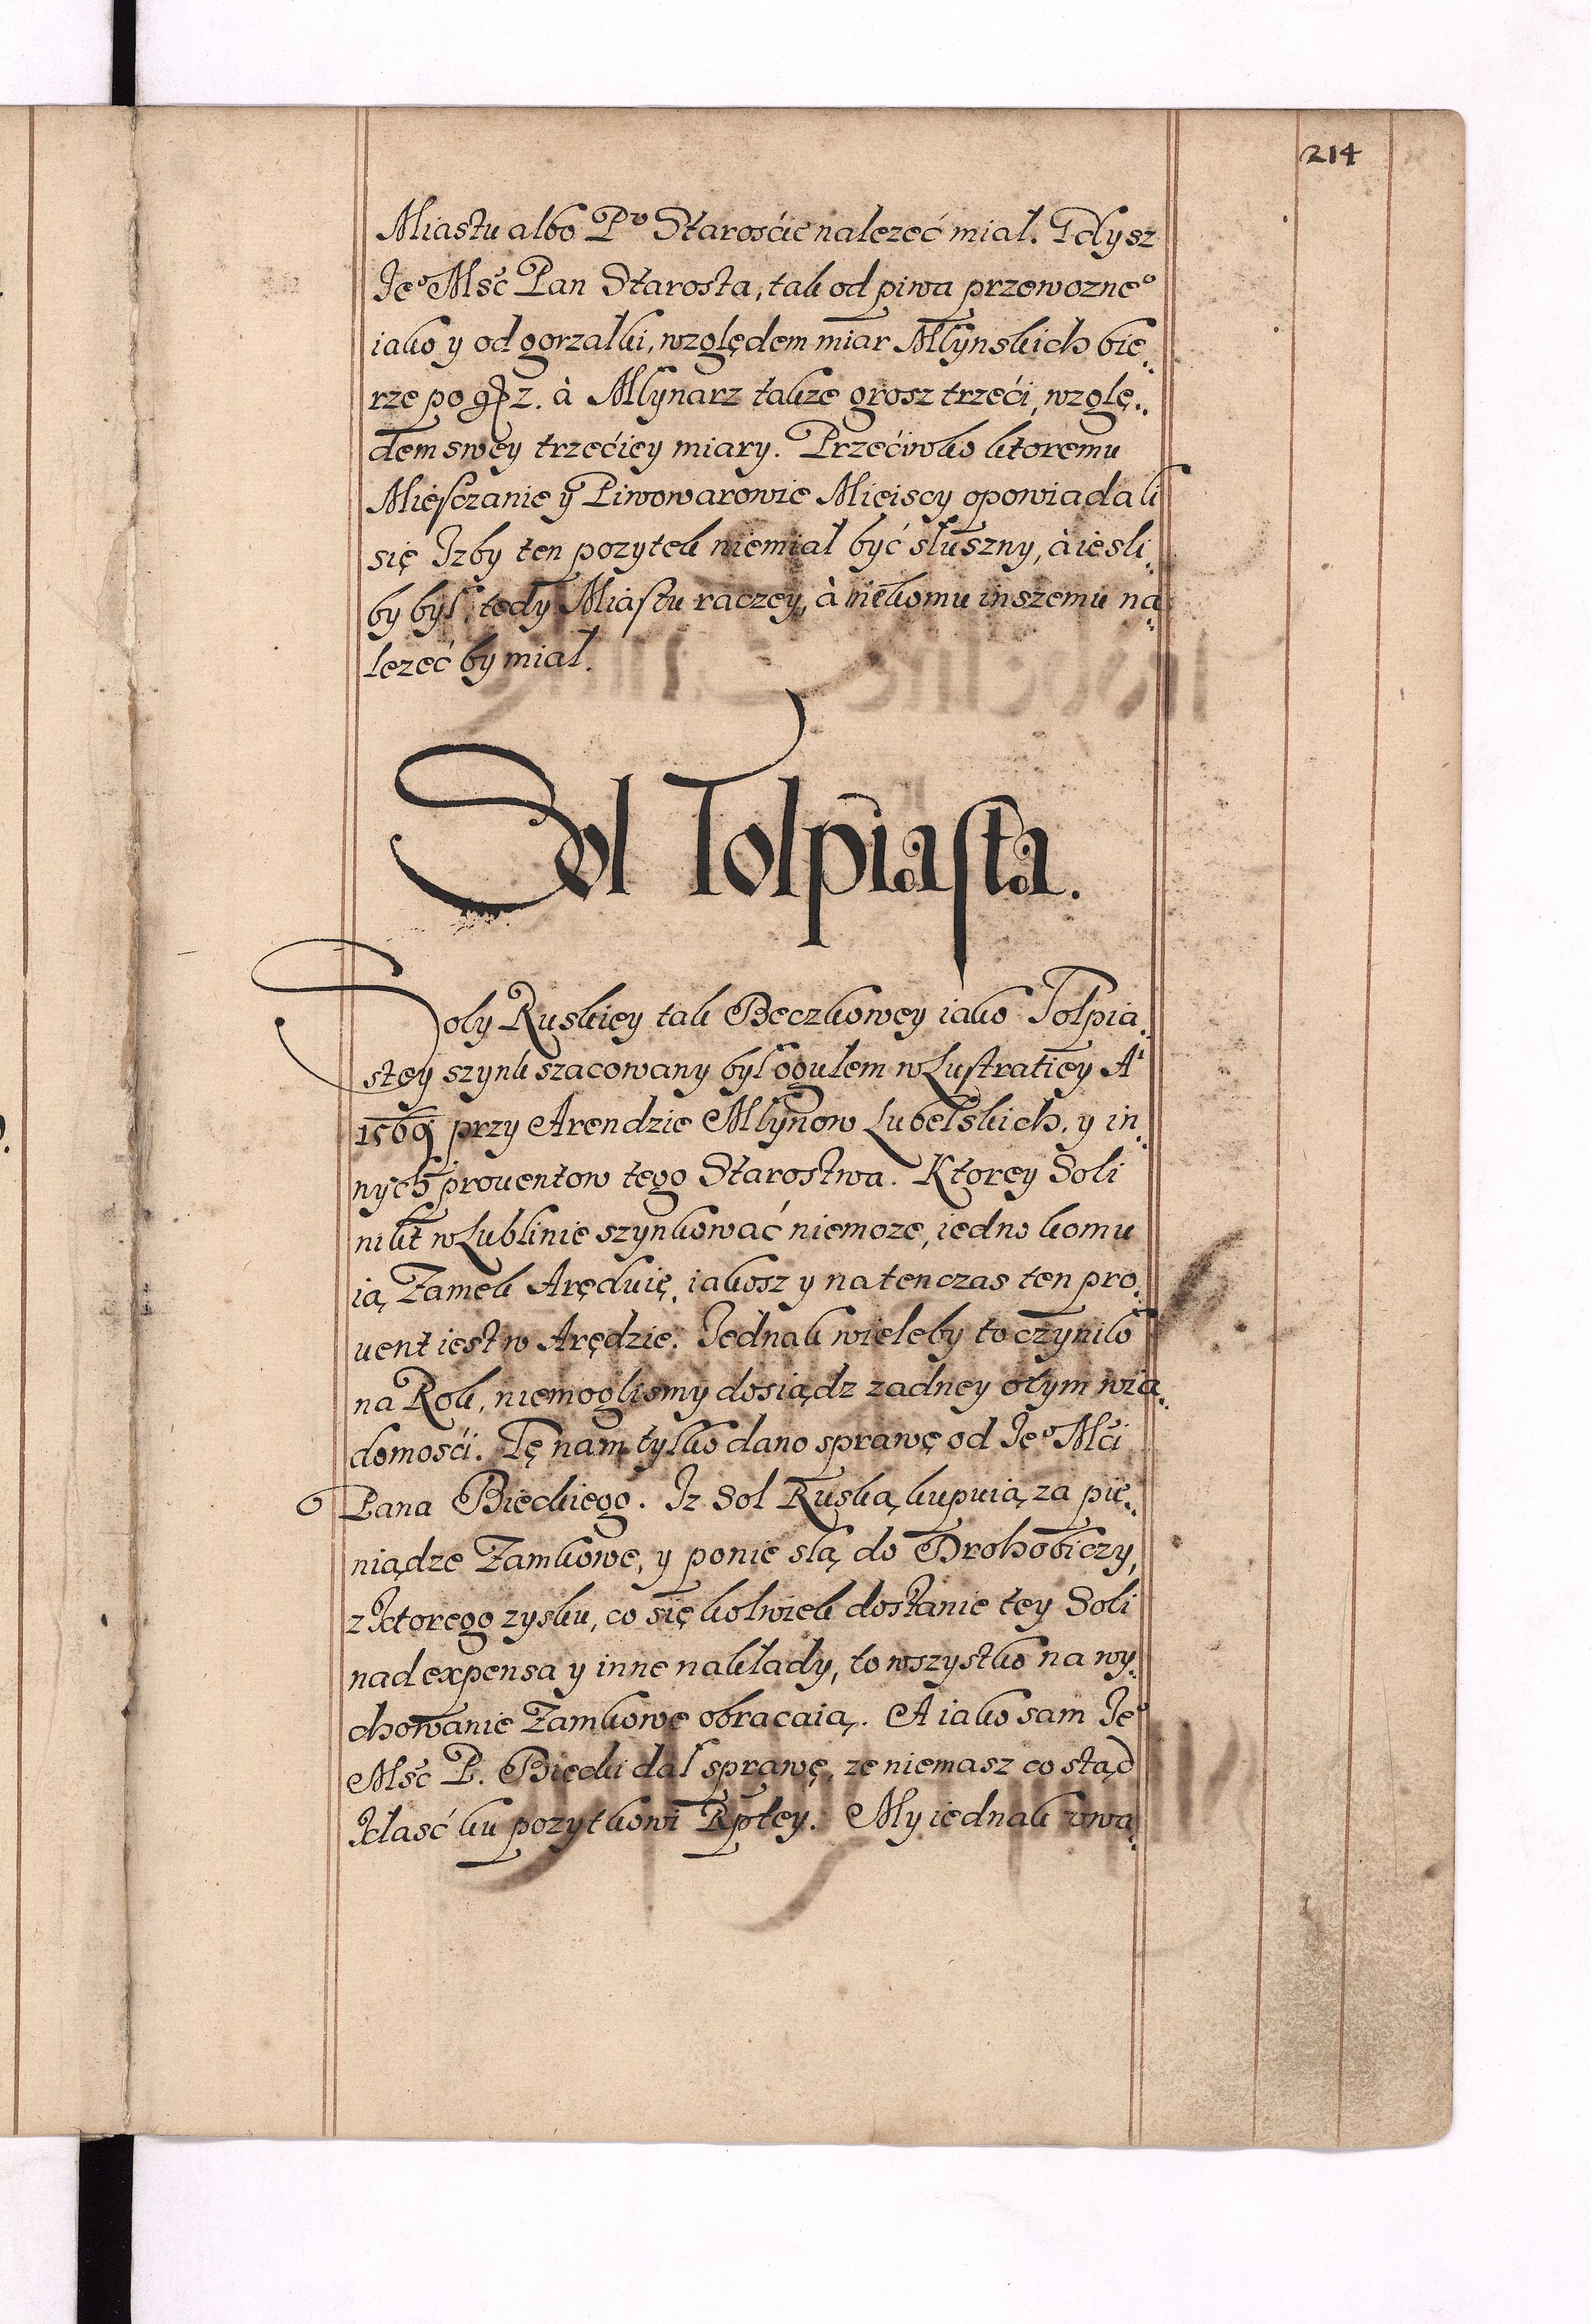 214
Miastu albo P° Starośćie nalezeć miał. Gdysz
Je° Mść Pan Starosta, tak od piwa przewozne°
iako y od gorzałki, względem miar Młynskich bie„
rze po gr z. à Młynarz takze grosz trzeći, wzglę„
dem swey trzećiey miary. Przećiwko ktoremu
Mieſczanie y Piwowarowie Mieiscy opowiadali
się Izby ten pozytek niemiał być słuszny, à iesli„
by był, tedy Miaſtu raczey, à niekomu inszemu na„
lezeć by miał.
Sol Tołpiaſta.
Soly Ruskiey tak Beczkowey iako Tołpia„
stey szynk szacowany był ogułem w Luſtratiey A°
1569 przy Arendzie Młynow Lubelskich, y in„
nych prouentow tego Starostwa. Ktorey Soli
nikt w Lublinie szynkować niemoze, iedno komu
ią Zamek Aręduię, iakosz y na ten czas ten pro„
uent iest w Arędzie. Jednak wieleby to czyniło
na Rok, niemoglismy dosiądz zadney o tym wia„
domośći. Tę nam tylko dano sprawę od Je° Mći
Pana Bieckiego. Iz Sol Ruską kupuią za pie„
niądze Zamkowe, y ponie slą do Drohobiczy,
z ktorego zysku, co się kolwiek dostanie tey Soli
nad expensa y inne nakłady, to wszystko na wy„
chowanie Zamkowe obracaią. A iako sam Je°
Mść P. Biecki dał sprawę, ze niemasz co stąd
kłasć ku pozytkowi Rptey. My iednak vwa„